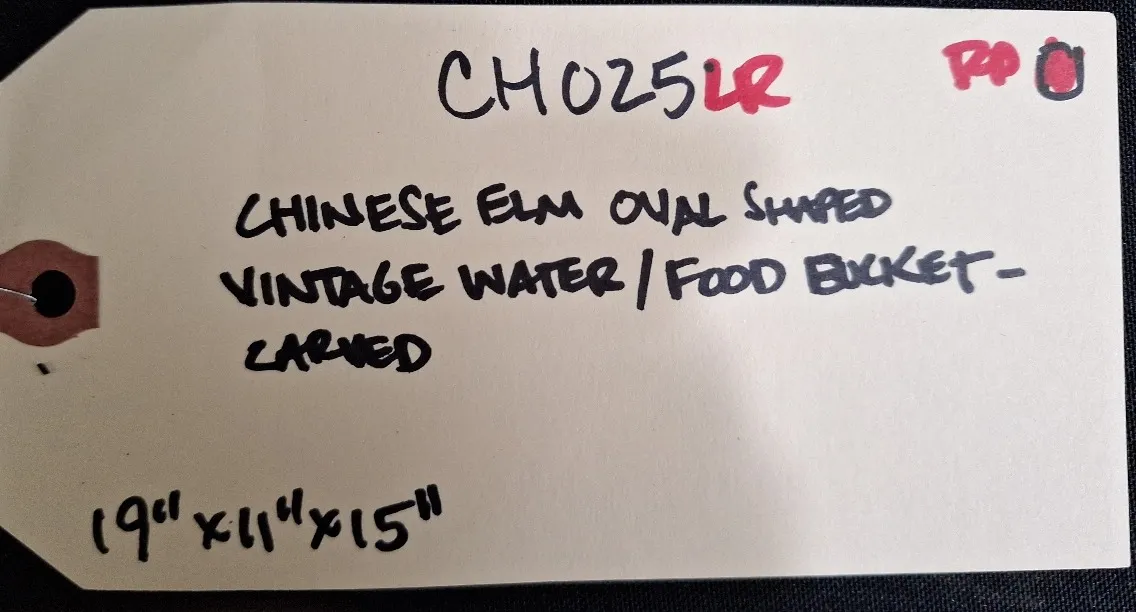 CH025LR RP
CHINESE ELM OVAL SHAPED
VINTAGE WATER/FOOD BUCKET-
CARVED
19"x11"x15"